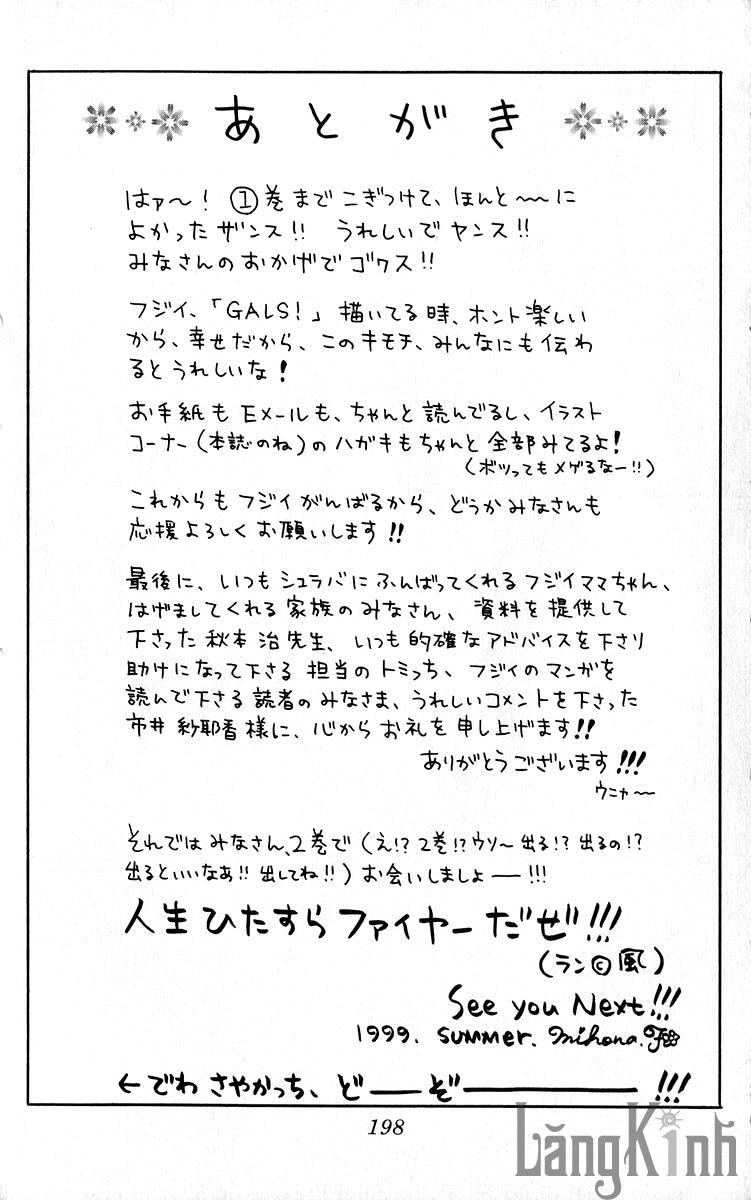 あとがき
はァ〜! ①巻までこぎつけて、ほんと〜〜に
よかったザンス!! うれしいでヤンス!!
みなさんのおかげでゴワス!!
フジイ、「GALS!」描いてる時、ホント楽しい
から、幸せだから、このキモチ、みんなにも伝わ
るとうれしいな!
お手紙もEメールも、ちゃんと読んでるし、イラスト
コーナー(本誌のね)のハガキもちゃんと全部みてるよ!
(ボツってもメゲるなー!!)
これからもフジイがんばるから、どうかみなさんも
応援よろしくお願いします!!
最後に、いつもシュラバにふんばってくれるフジイママちゃん、
はげましてくれる家族のみなさん、資料を提供して
下さった秋本治先生、いつも的確なアドバイスを下さり
助けになって下さる担当のトミっち、フジイのマンガを
読んで下さる読者のみなさま、うれしいコメントを下さった
市井紗耶香様に、心からお礼を申し上げます!!
ありがとうございます!!!
ウニャ〜〜
それではみなさん、2巻で(え!?2巻!?ウソ〜出る!?出るの!?
出るといいなあ!!出してね!!)お会いしましょ——!!!
人生ひたすらファイヤーだぜ!!!
(ラン©風)
See you Next!!!
1999. summer. mihona.F
←でわさやかっち、ど——ぞ————!!!
198
LăngKính